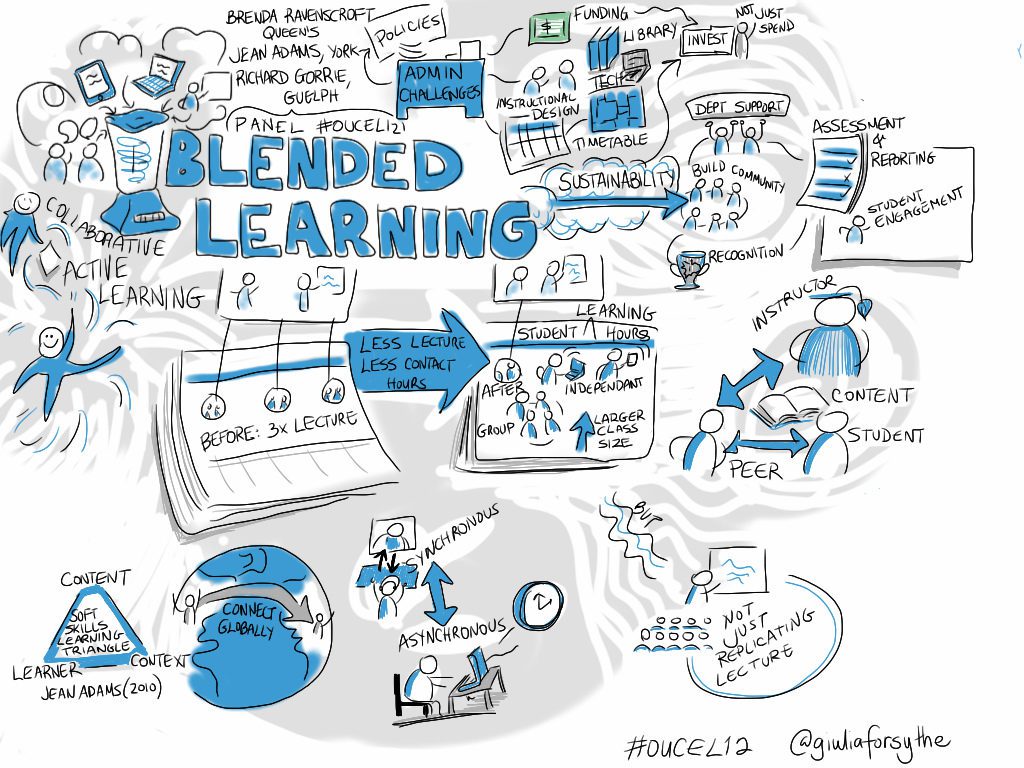 BRENDA RAVENSCROFT
QUEEN'S
JEAN ADAMS, YORK
RICHARD GORRIE,
GUELPH
PANEL #OUCEL121
POLICIES
ADMIN
CHALLENGES
FUNDING
LIBRARY
TECH
INSTRUCTIONAL
DESIGN
TIMETABLE
INVEST
NOT JUST
SPEND
DEPT SUPPORT
BLENDED
LEARNING
SUSTAINABILITY
BUILD COMMUNITY
RECOGNITION
ASSESSMENT
&
REPORTING
STUDENT
ENGAGEMENT
COLLABORATIVE
ACTIVE
LEARNING
BEFORE: 3x LECTURE
LESS LECTURE
LESS CONTACT
HOURS
LEARNING
STUDENT HOURS
AFTER
INDEPENDANT
GROUP
LARGER
CLASS
SIZE
INSTRUCTOR
CONTENT
STUDENT
PEER
CONTENT
SOFT
SKILLS
LEARNING
TRIANGLE
LEARNER
CONTEXT
JEAN ADAMS (2010)
CONNECT
GLOBALLY
SYNCHRONOUS
ASYNCHRONOUS
BUT
NOT
JUST
REPLICATING
LECTURE
#OUCEL12 @giuliaforsythe